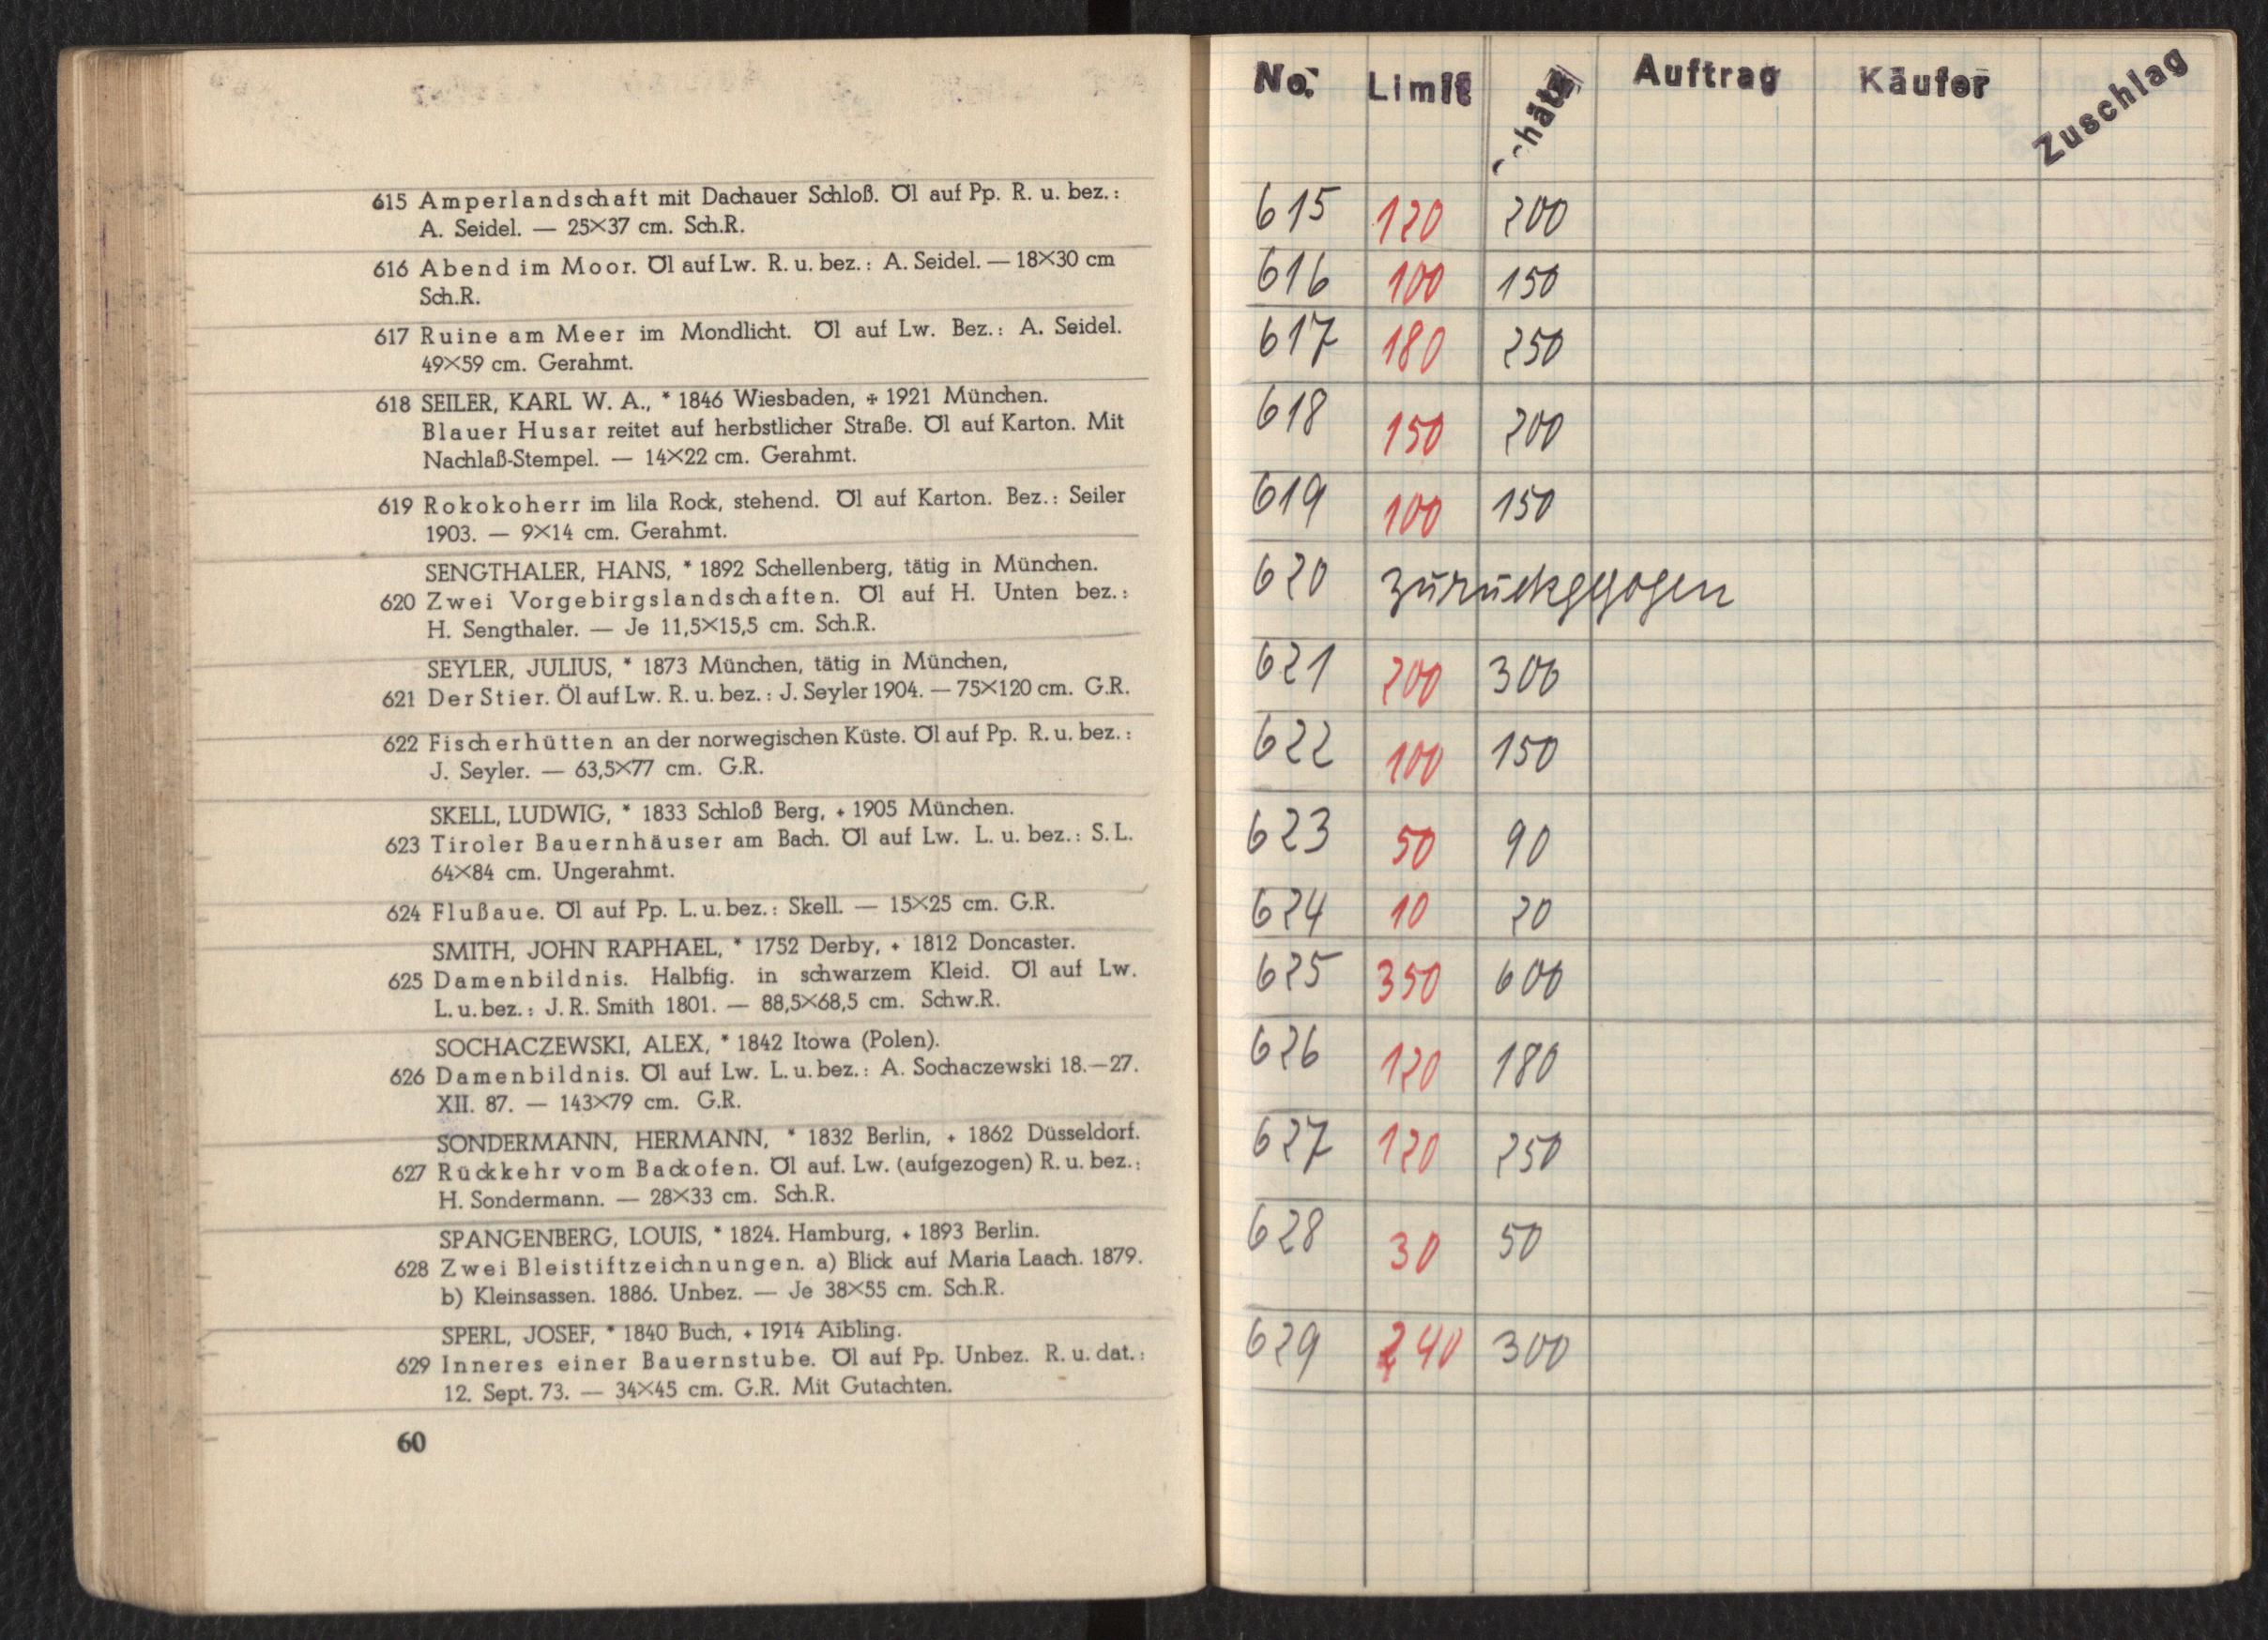 615 Amperlandschaft mit Dachauer Schloß. Öl auf Pp. R. u. bez.:
A. Seidel. — 25×37 cm. Sch.R.
616 Abend im Moor. Öl auf Lw. R. u. bez.: A. Seidel. — 18×30 cm
Sch.R.
617 Ruine am Meer im Mondlicht. Öl auf Lw. Bez.: A. Seidel.
49×59 cm. Gerahmt.
618 SEILER, KARL W. A., * 1846 Wiesbaden, + 1921 München.
Blauer Husar reitet auf herbstlicher Straße. Öl auf Karton. Mit
Nachlaß-Stempel. — 14×22 cm. Gerahmt.
619 Rokokoherr im lila Rock, stehend. Öl auf Karton. Bez.: Seiler
1903. — 9×14 cm. Gerahmt.
SENGTHALER, HANS, * 1892 Schellenberg, tätig in München.
620 Zwei Vorgebirgslandschaften. Öl auf H. Unten bez.:
H. Sengthaler. — Je 11,5×15,5 cm. Sch.R.
SEYLER, JULIUS, * 1873 München, tätig in München,
621 Der Stier. Öl auf Lw. R. u. bez.: J. Seyler 1904. — 75×120 cm. G.R.
622 Fischerhütten an der norwegischen Küste. Öl auf Pp. R. u. bez.:
J. Seyler. — 63,5×77 cm. G.R.
SKELL, LUDWIG, * 1833 Schloß Berg, + 1905 München.
623 Tiroler Bauernhäuser am Bach. Öl auf Lw. L. u. bez.: S. L.
64×84 cm. Ungerahmt.
624 Flußaue. Öl auf Pp. L. u. bez.: Skell. — 15×25 cm. G.R.
SMITH, JOHN RAPHAEL, * 1752 Derby, + 1812 Doncaster.
625 Damenbildnis. Halbfig. in schwarzem Kleid. Öl auf Lw.
L. u. bez.: J. R. Smith 1801. — 88,5×68,5 cm. Schw.R.
SOCHACZEWSKI, ALEX, * 1842 Itowa (Polen).
626 Damenbildnis. Öl auf Lw. L. u. bez.: A. Sochaczewski 18.—27.
XII. 87. — 143×79 cm. G.R.
SONDERMANN, HERMANN, * 1832 Berlin, + 1862 Düsseldorf.
627 Rückkehr vom Backofen. Öl auf. Lw. (aufgezogen) R. u. bez.:
H. Sondermann. — 28×33 cm. Sch.R.
SPANGENBERG, LOUIS, * 1824. Hamburg, + 1893 Berlin.
628 Zwei Bleistiftzeichnungen. a) Blick auf Maria Laach. 1879.
b) Kleinsassen. 1886. Unbez. — Je 38×55 cm. Sch.R.
SPERL, JOSEF, * 1840 Buch, + 1914 Aibling.
629 Inneres einer Bauernstube. Öl auf Pp. Unbez. R. u. dat.:
12. Sept. 73. — 34×45 cm. G.R. Mit Gutachten.
60
No. Limit Auftrag Käufer Zuschlag
615 120 200
616 100 150
617 180 250
618 150 200
619 100 150
620 zurückgezogen
621 200 300
622 100 150
623 50 90
624 10 20
625 350 600
626 120 180
627 120 250
628 30 50
629 240 300